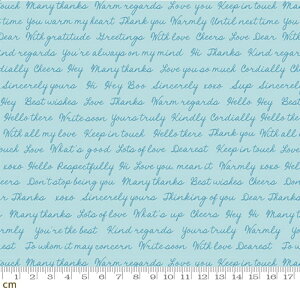 touch Many thanks Warm regards Love you Keep in touch
time You warm my heart Thank you Warmly Until next time You
Dear With gratitude Greetings With love Cheers Love Dear With
Kind regards You're always on my mind Hi Thanks Kind regar
dially Cheers Hey Many thanks Love you so much Cordially Ch
Sincerely yours Hi Hey Boo Sincerely xoxo Sup Sincerely
Hey Best wishes Love Thanks Warm regards Hello Hey Best
Hello there Write soon Yours truly Kindly Cordially Hello the
With all my love Keep in touch Hello there Thank you With all
Touch Love What's good Lots of love Dearest Keep in touch Lo
xoxo Hello Respectfully Hi Love you mean it Warmly xoxo
Cheers Don't stop being you Many thanks Best wishes Cheers D
r Thanks xoxo Sincerely yours Thinking of you Dear Thanks
Many thanks Lots of love What's up Cheers Hey Hi Many
Warmly You're the best Kind regards Yours truly Warmly
est To whom it may concern Write soon With love Dearest To w
1 2 3 4 5 6 7 8 9 10 11 12 13 14 15 16 17
cm